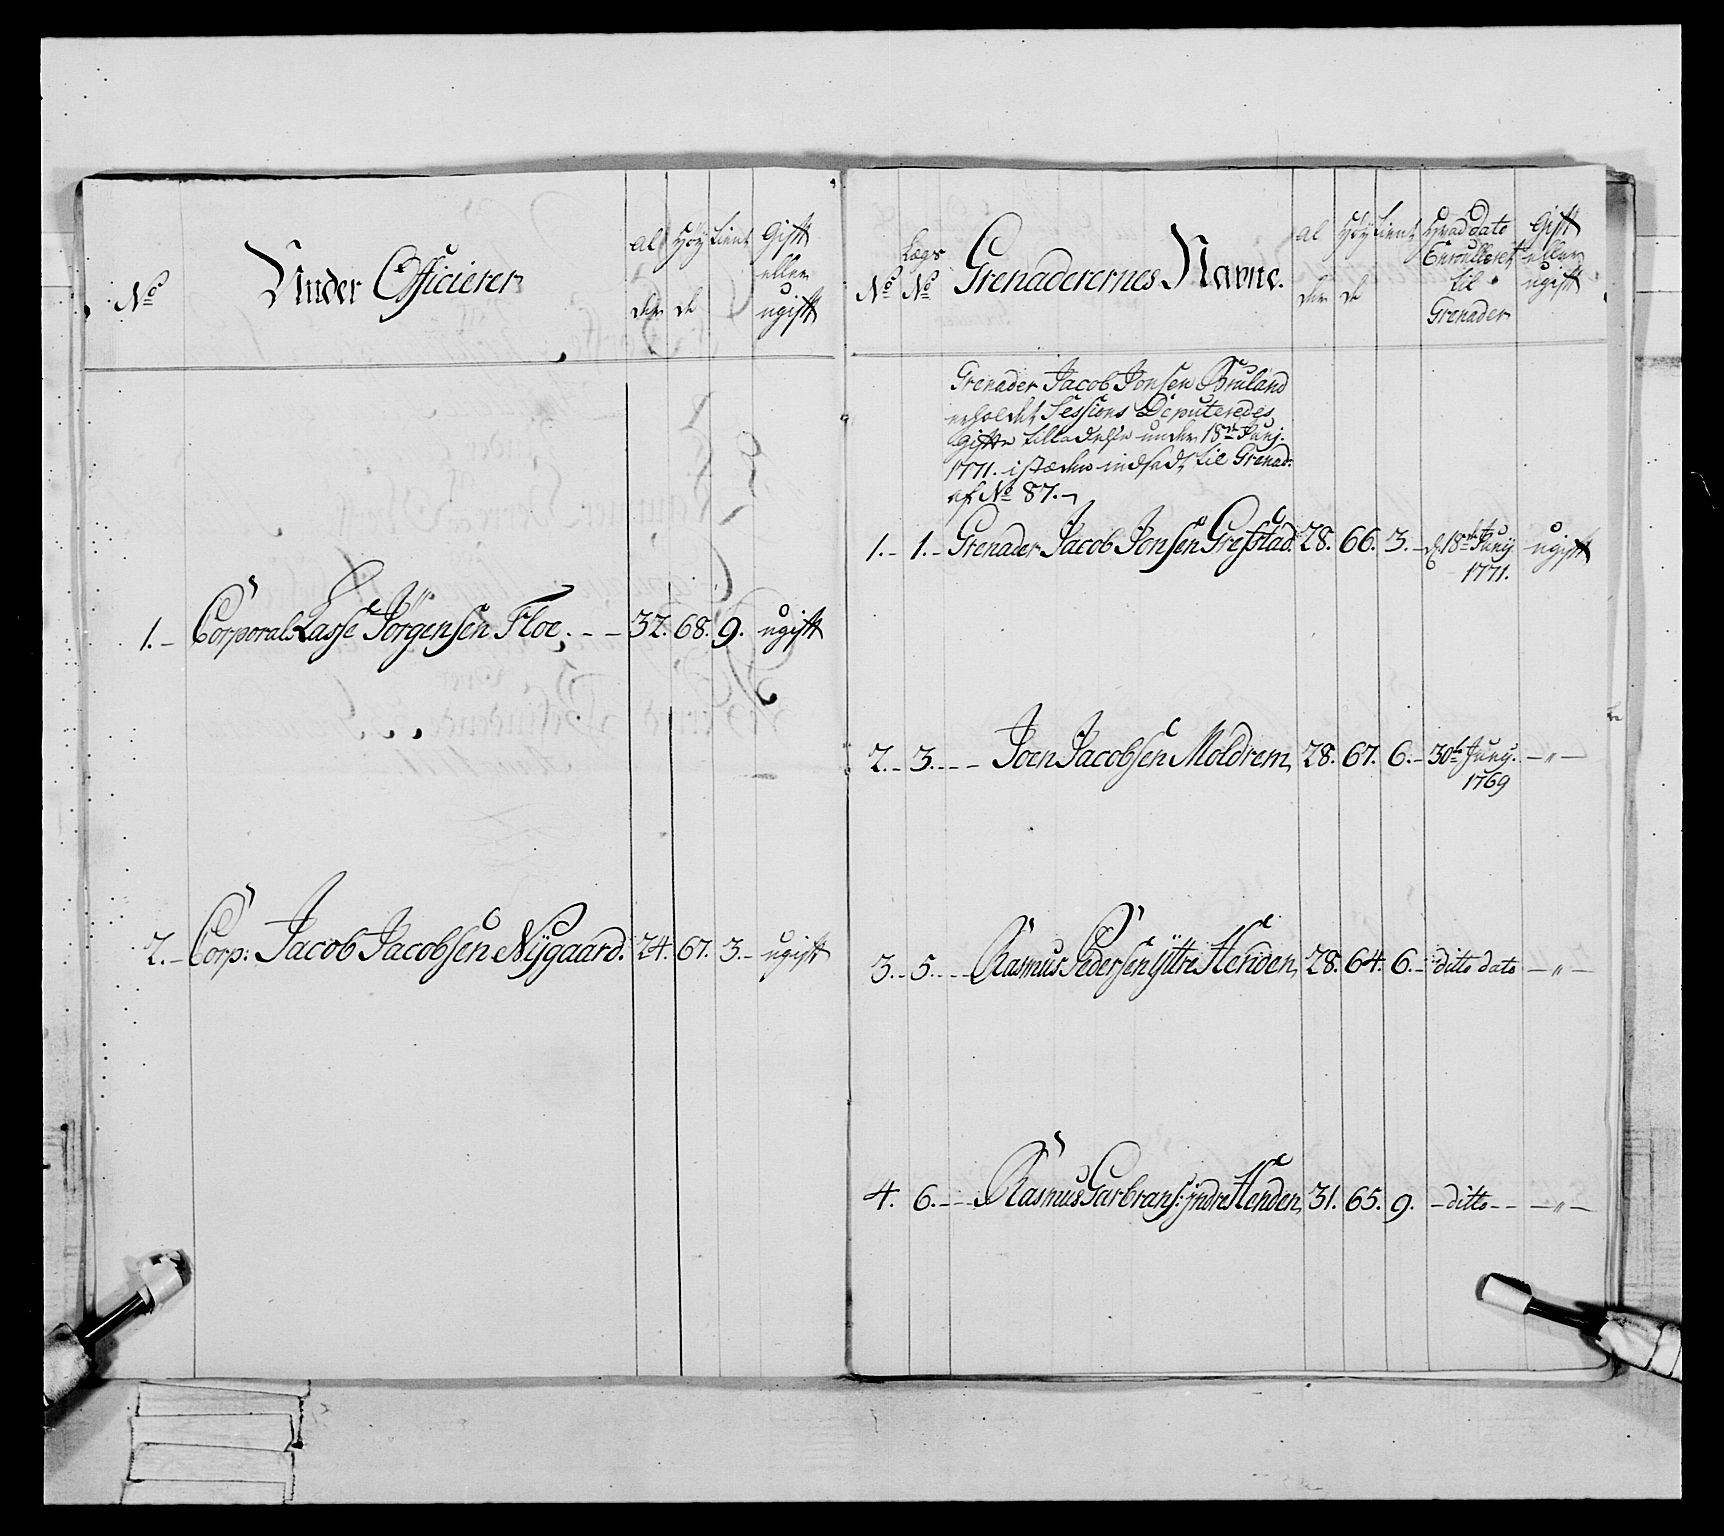 No
Under Officierer
al
der
Höy
de
tient
Gift
eller
ugift
1. Corporal Lasse Jörgensen Floe. 32. 68. 9. ugift
2. Corp: Jacob Jacobsen Nÿgaard. 24. 67. 3. ugift
No
Lægs
No
Grenaderernes Navne.
al
der
Höy
de
tient
Hvad dato
Enroulleret
til
Grenader
Gift
eller
ugift
Grenader Jacob Jonsen Bruland
erholdet Sessions Deputeredes
gifte tilladelse under 18de Junj.
1771. istæden indsadt til Grenad:
af No 87.
1. 1. Grenader Jacob Jonsen Grefstad. 28. 66. 3. d. 18de Junij ugift
1771.
2. 3. Joen Jacobsen Moldrem 28. 67. 6. 30te Junij. — " —
1769
3. 5. Rasmus Pedersen ÿttre Henden 28. 64. 6. ditto dato — " —
4. 6. Rasmus Garbrans: jndre Henden 31. 65. 9. ditto — " —